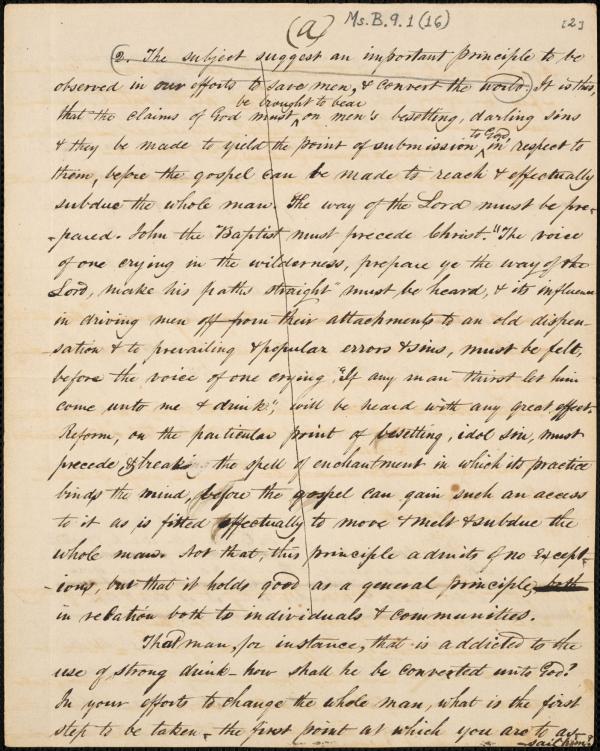 (a) Ms.B.9.1(16) [2]
2. The subject suggest an important principle to be
observed in our efforts to save men, & convert the world. It is this,
be brought to bear
that the claims of God must ^ on men's besetting, darling sins
to God,
& they be made to yield the point of submission ^ in respect to
them, before the gospel can be made to reach & effectually
subdue the whole man. The way of the Lord must be pre-
-pared. John the Baptist must precede Christ. "The voice
of one crying in the wilderness, prepare ye the way of the
Lord, make his paths straight" must be heard, & its influence
in driving men off from their attachments to an old dispen-
-sation & to prevailing & popular errors & sins, must be felt,
before the voice of one crying, "If any man thirst let him
come unto me & drink", will be heard with any great effect.
Reform, on the particular point of besetting, idol sin, must
precede & break the spell of enchantment in which its practice
binds the mind, before the gospel can gain such an access
to it as is fitted effectually to move & melt & subdue the
whole man. Not that, this principle admits of no except-
-ions, but that it holds good as a general principle, both
in relation both to individuals & communities.
That man, for instance, that is addicted to the
use of strong drink - how shall he be converted unto God?
In your efforts to change the whole man, what is the first
step to be taken - the first point at which you are to as-
-sail him?